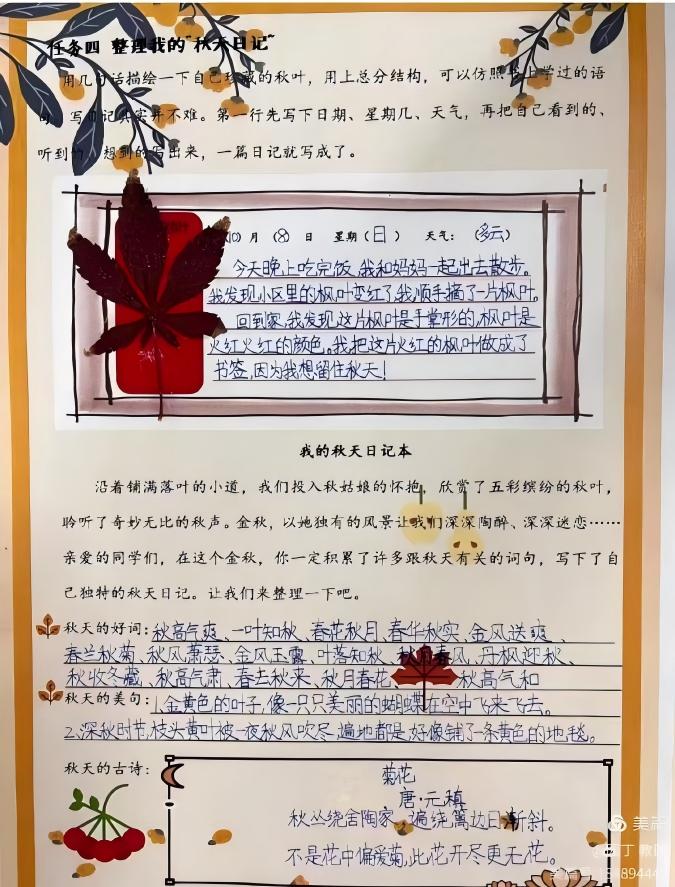 任务四 整理我的“秋天日记”
用几句话描绘一下自己珍藏的秋叶，用上总分结构，可以仿照书上学过的语
句。写日记其实并不难。第一行先写下日期、星期几、天气，再把自己看到的、
听到的、想到的写出来，一篇日记就写成了。
(10) 月 (8) 日 星期 (日) 天气： (多云)
今天晚上吃完饭，我和妈妈一起出去散步。
我发现小区里的枫叶变红了，我顺手摘了一片枫叶。
回到家，我发现这片枫叶是手掌形的，枫叶是
火红火红的颜色。我把这片火红的枫叶做成了
书签，因为我想留住秋天！
我的秋天日记本
沿着铺满落叶的小道，我们投入秋姑娘的怀抱，欣赏了五彩缤纷的秋叶，
聆听了奇妙无比的秋声。金秋，以她独有的风景让我们深深陶醉、深深迷恋……
亲爱的同学们，在这个金秋，你一定积累了许多跟秋天有关的词句，写下了自
己独特的秋天日记。让我们来整理一下吧。
秋天的好词：秋高气爽、一叶知秋、春花秋月、春华秋实、金风送爽、
春兰秋菊、秋风萧瑟、金风玉露、叶落知秋、秋月春风、丹枫迎秋、
秋收冬藏、秋高气肃、春去秋来、秋月春花、秋高气和
秋天的美句：1.金黄色的叶子，像一只只美丽的蝴蝶在空中飞来飞去。
2.深秋时节，枝头黄叶被一夜秋风吹尽，遍地都是，好像铺了一条黄色的地毯。
秋天的古诗：
菊花
唐·元稹
秋丛绕舍陶家，遍绕篱边日渐斜。
不是花中偏爱菊，此花开尽更无花。
美篇